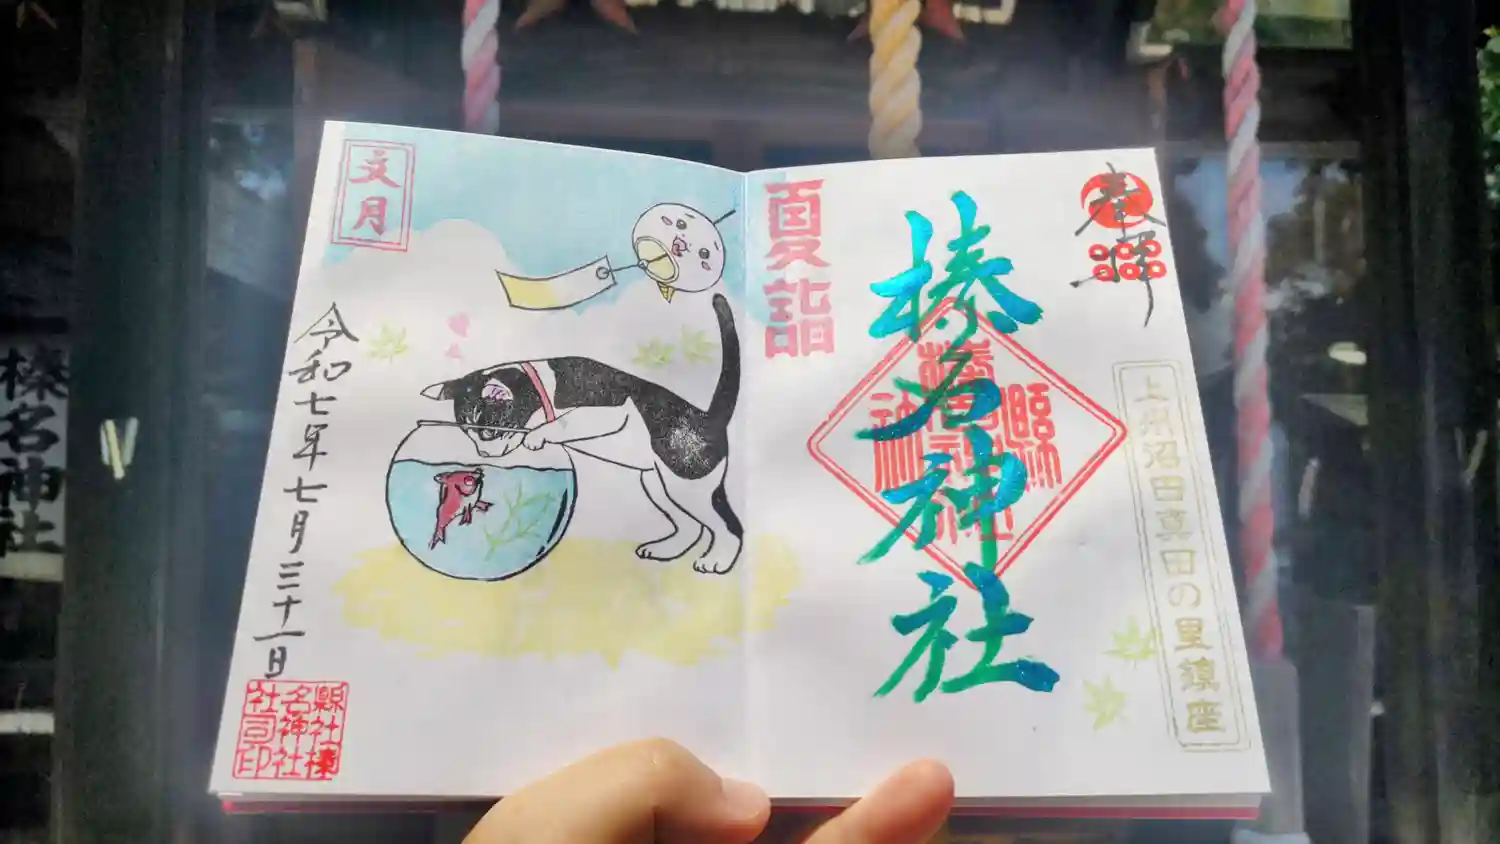 奉拝
上州沼田真田の里鎮座
榛名神社
夏詣
文月
令和七年七月三十一日
縣社榛
名神社
社司印
榛名神社